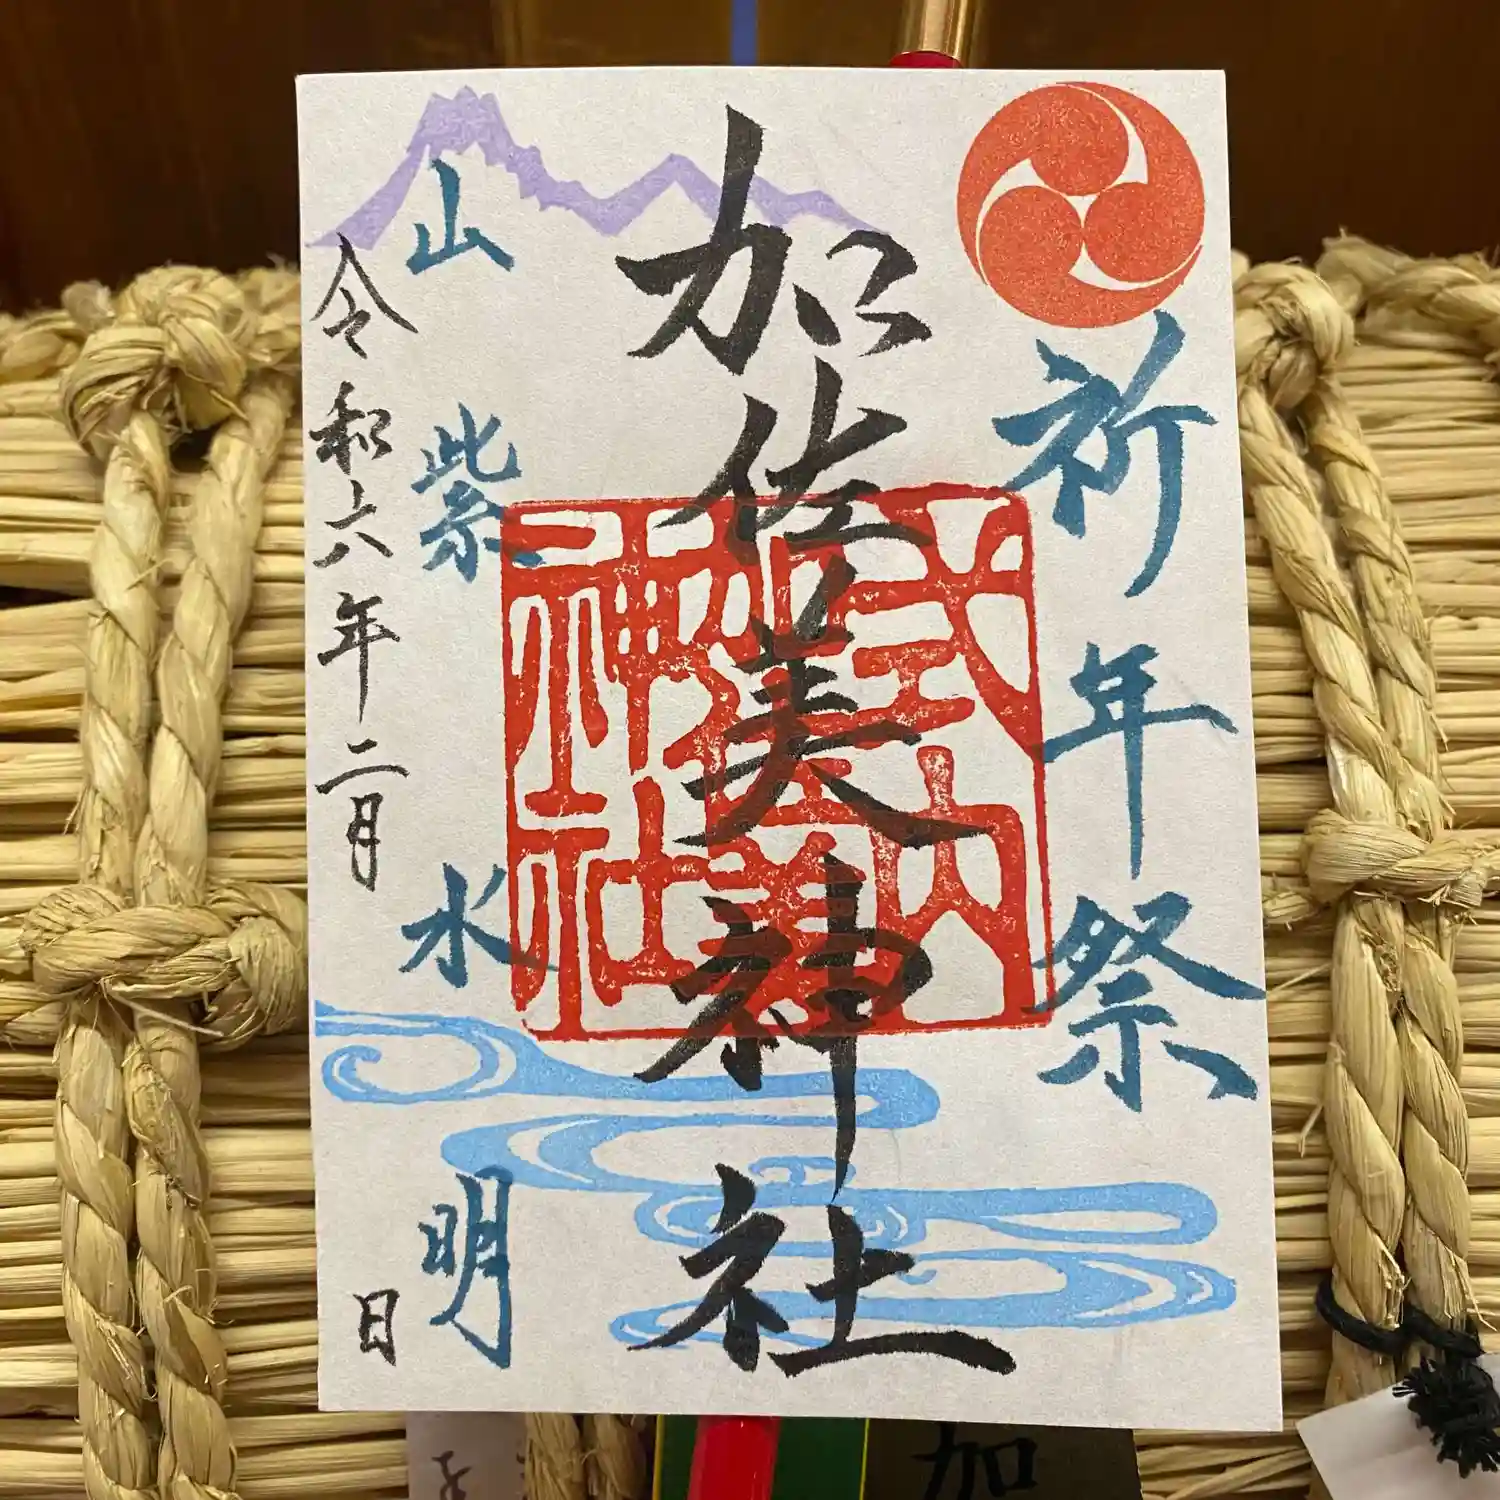 祈年祭
加佐美神社
式内
加佐美
神社
山紫水明
令和六年二月 日
加